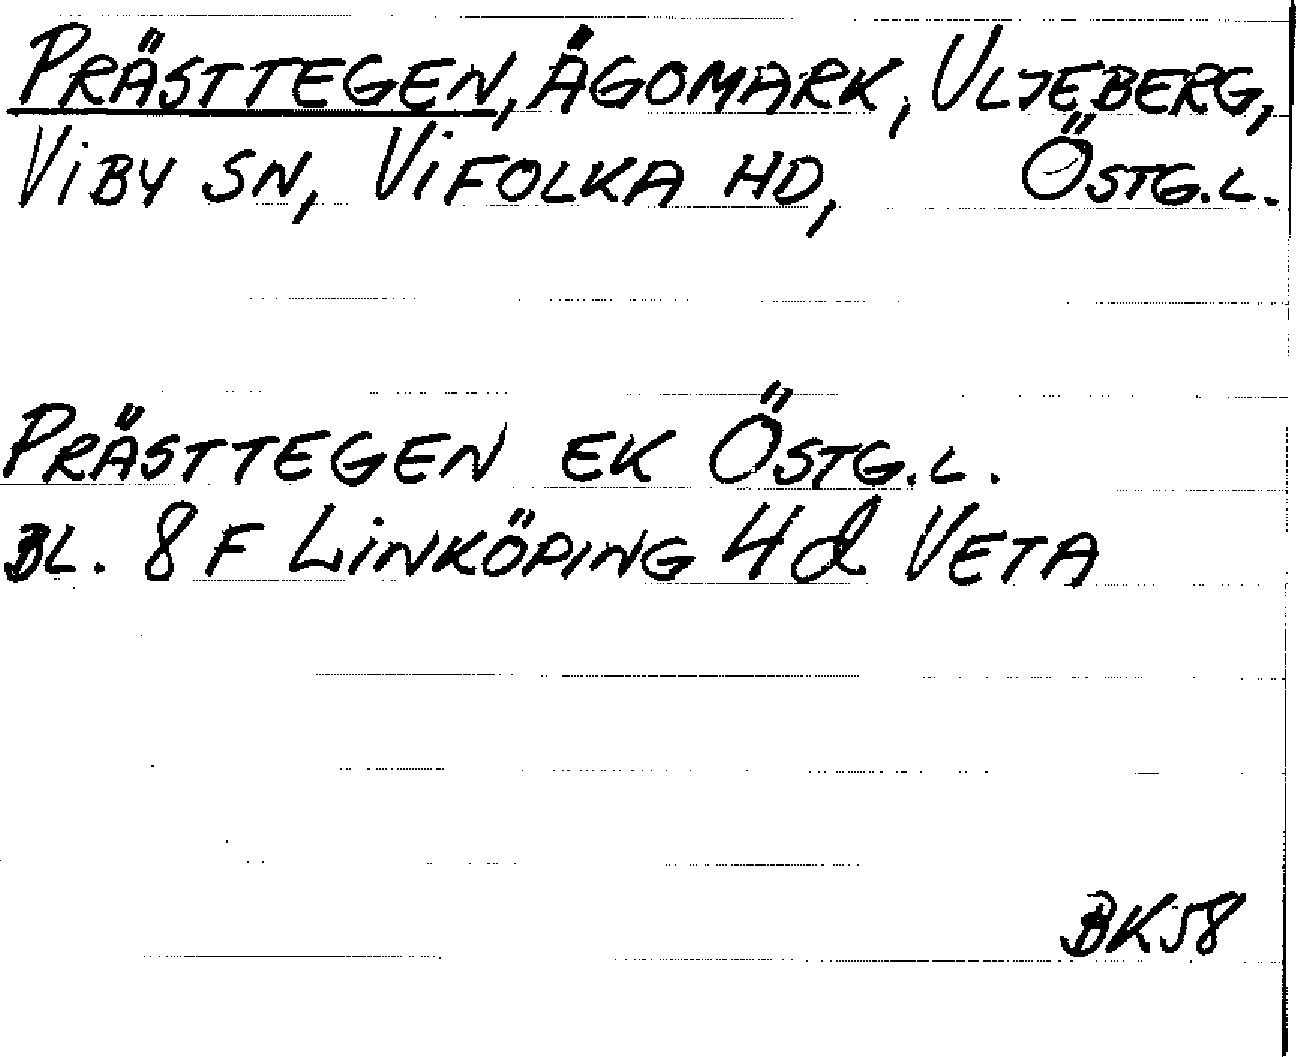 PRÄSTTEGEN, ÄGOMARK, ULJEBERG,
VIBY SN, VIFOLKA HD, ÖSTG.L.
PRÄSTTEGEN EK ÖSTG.L.
BL. 8F LINKÖPING 4d VETA
BK58